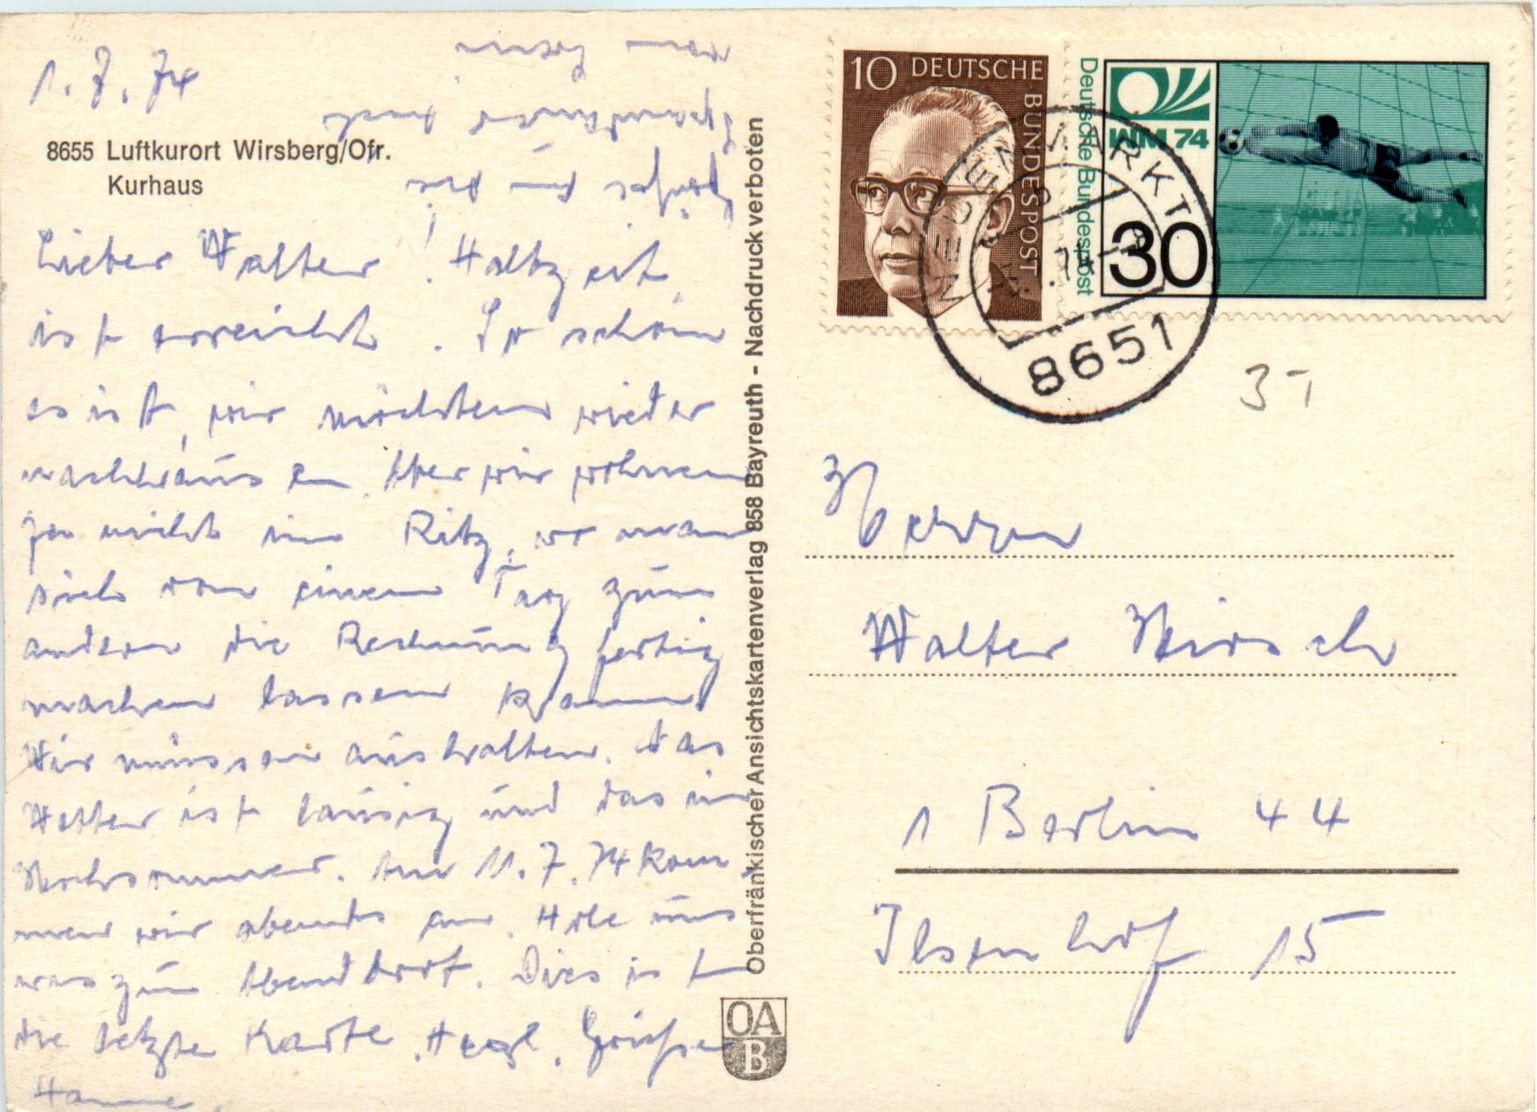 1.7.74
8655 Luftkurort Wirsberg/Ofr.
Kurhaus
Lieber Walter! Halbzeit
ist erreicht. So schön
es ist, wir möchten wieder
nachhaus. Aber wir wohnen
ja nicht im Ritz, wo man
sich von einem Tag zum
andern die Rechnung fertig
machen lassen kann
Wir müssen aushalten. Das
Wetter ist lausig und das im
Hochsommer. Am 11.7.74 kom
men wir abends an. Hole uns
was zum Abendbrot. Dies ist
die letzte Karte. Herzl. Grüße
Hanne
von
Oberfränkischer Ansichtskartenverlag 858 Bayreuth - Nachdruck verboten
OA
B
10 DEUTSCHE BUNDESPOST
Deutsche Bundespost
WM 74
30
8651
Herrn
Walter Hirsch
1 Berlin 44
Ilsenhof 15